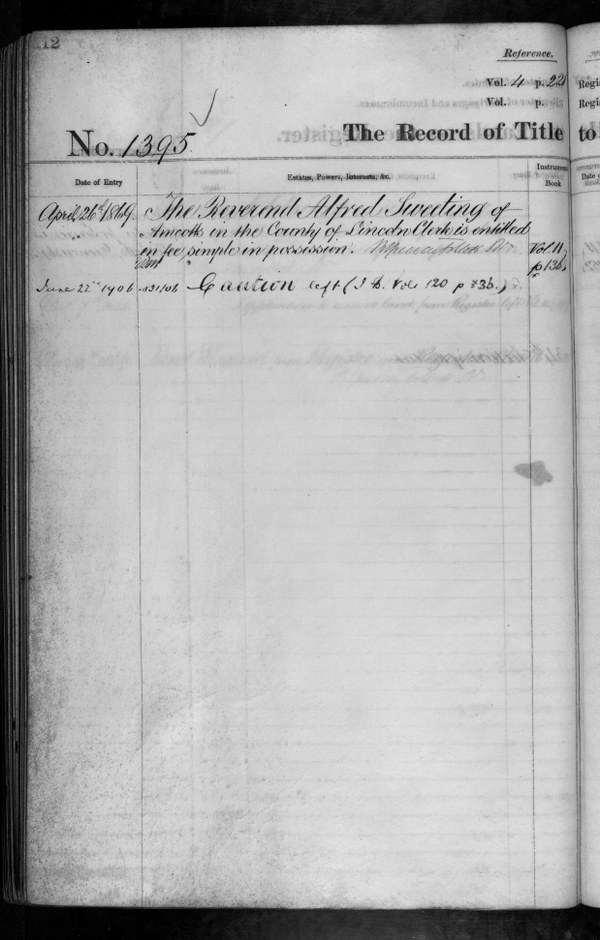 12
Reference.
Vol. 4 p. 22
Vol. p.
No. 1395
The Record of Title
Date of Entry
Estates, Powers, Interests, &c.
Instrument Book
April 26th 1869. The Reverend Alfred Sweeting of
Amcotts in the County of Lincoln Clerk is entitled
in fee simple in possession.
Vol. 11
p 136
June 22nd 1906 Caution left (I B. Vol. 120 p 136.)
to
Regi
Regi
Date